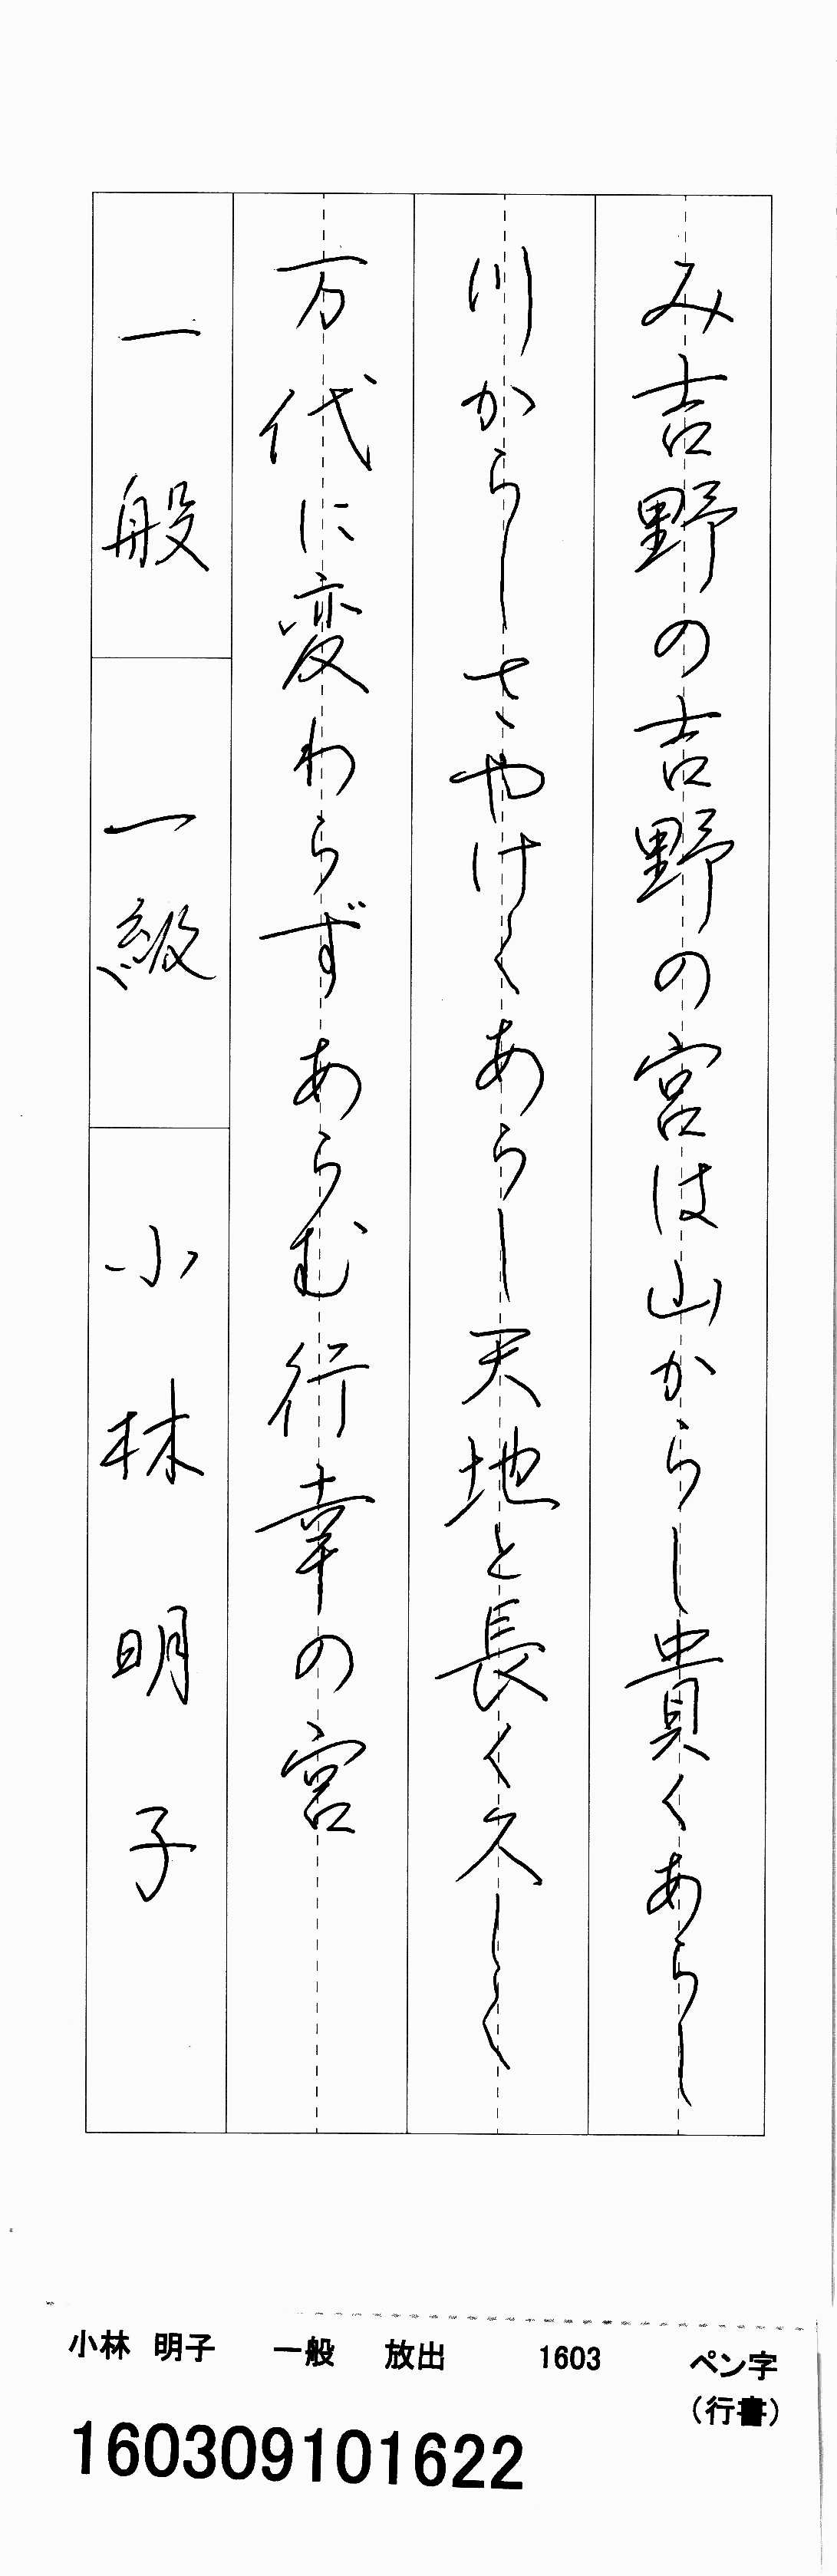 み吉野の吉野の宮は山からし貴くあらし
川からしさやけくあらし天地と長く久しく
万代に変わらずあらむ行幸の宮
一般 一級 小林明子
小林 明子 一般 放出 1603 ペン字
(行書)
160309101622